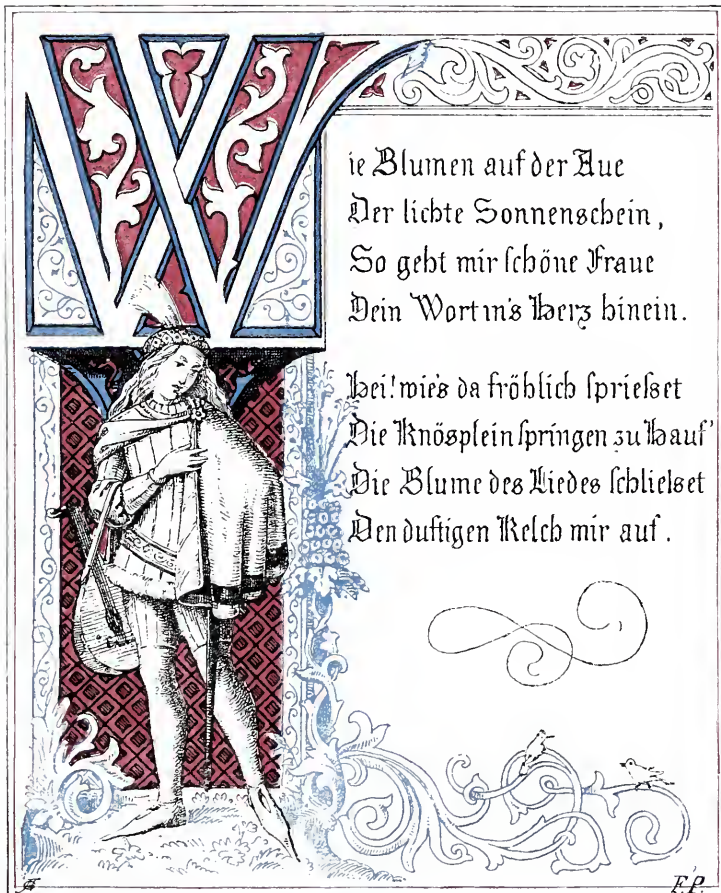 Wie Blumen auf der Aue
Der lichte Sonnenschein,
So geht mir schöne Fraue
Dein Wort in's Herz hinein.
Hei! wie's da fröhlich sprießet
Die Knösplein springen zu Hauf'
Die Blume des Liedes schließet
Den duftigen Kelch mir auf.
F.P.